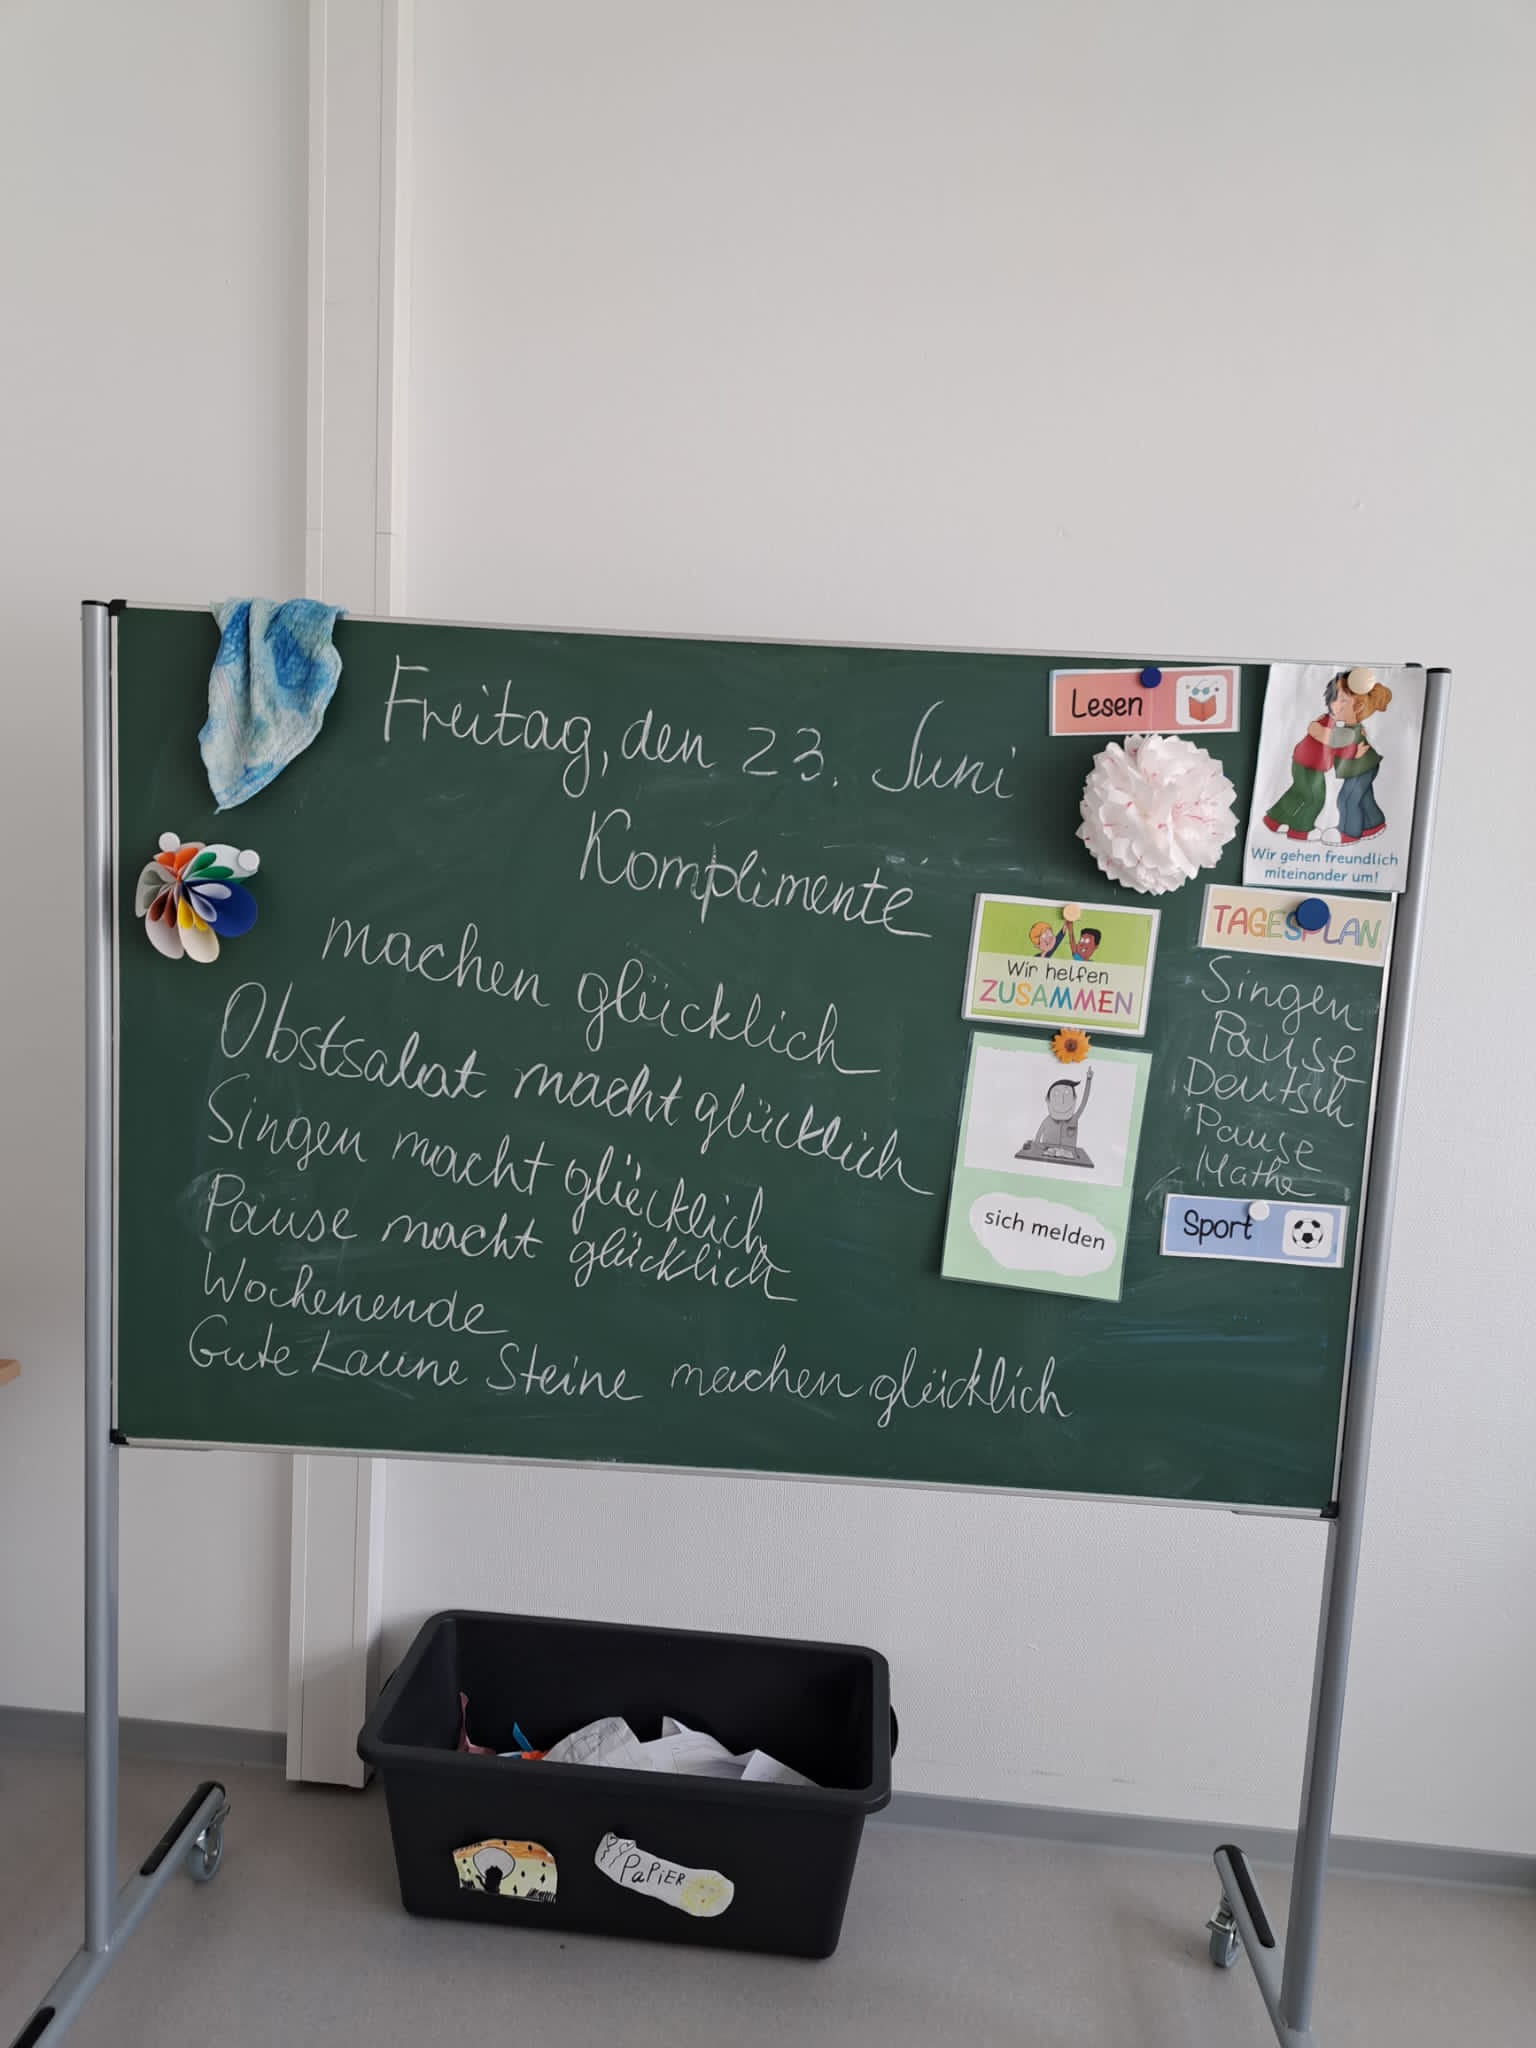 Freitag, den 23. Juni
Komplimente
machen glücklich
Obstsalat macht glücklich
Singen macht glücklich
Pause macht glücklich
Wochenende
Gute Laune Steine machen glücklich
Lesen
Wir gehen freundlich
miteinander um!
Wir helfen
ZUSAMMEN
sich melden
TAGESPLAN
Singen
Pause
Deutsch
Pause
Mathe
Sport
PaPiER